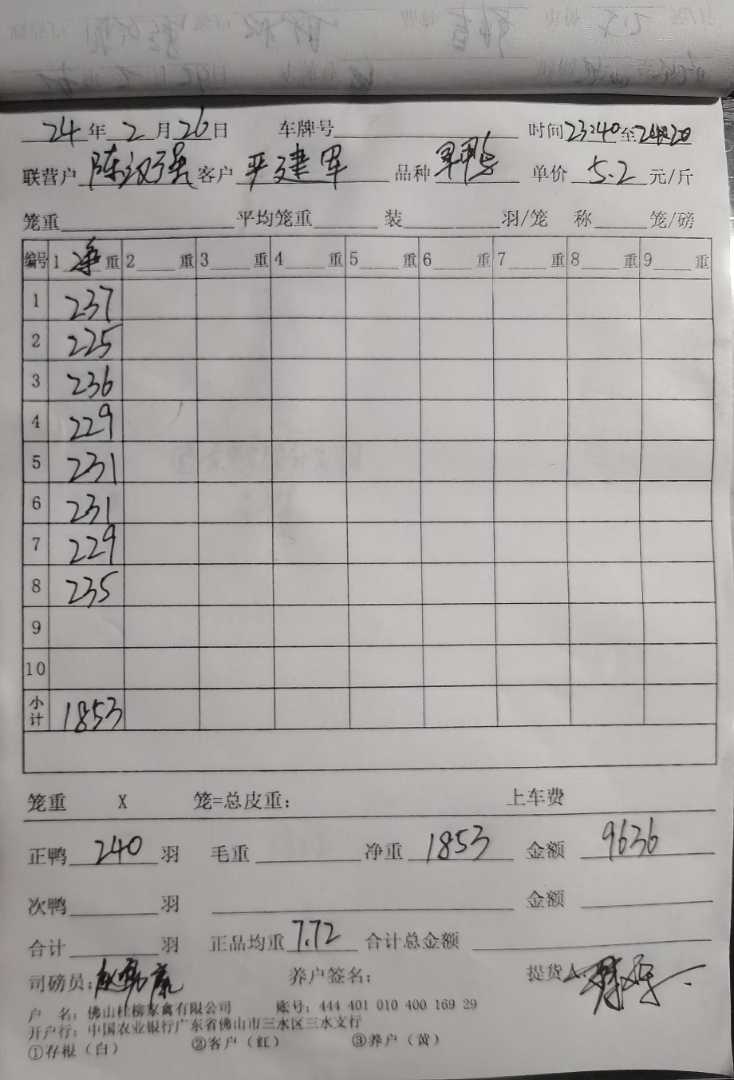 24年2月26日 车牌号 时间23:40至24:20
联营户 陈汉强 客户 严建军 品种 单鸭 单价 5.2 元/斤
笼重 平均笼重 装 羽/笼 称 笼/磅
编号 1 净重 2 重 3 重 4 重 5 重 6 重 7 重 8 重 9 重
1 237
2 225
3 236
4 229
5 231
6 231
7 229
8 235
9
10
小计 1853
笼重 X 笼=总皮重: 上车费
正鸭 240 羽 毛重 净重 1853 金额 9636
次鸭 羽 金额
合计 羽 正品均重 7.72 合计总金额
司磅员: 养户签名: 提货人
户 名: 佛山桂柳家禽有限公司 账号: 444 401 010 400 169 29
开户行: 中国农业银行广东省佛山市三水区三水支行
①存根(白) ②客户(红) ③养户(黄)